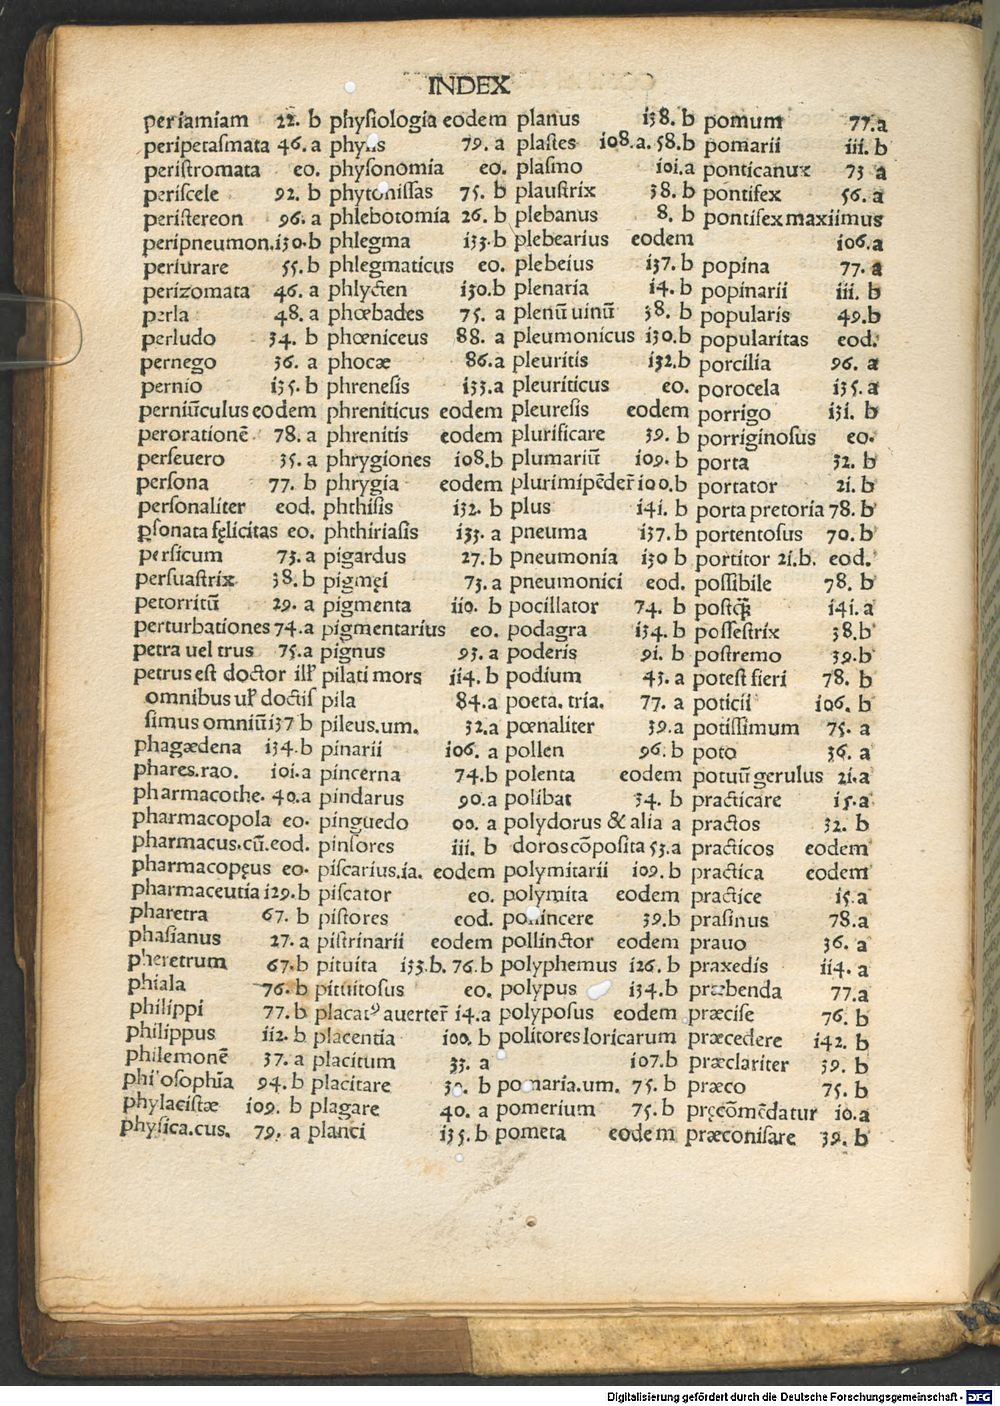 INDEX
periamiam 22. b
peripetasmata 46. a
peristromata eo.
periscele 92. b
peristereon 96. a
peripneumon.i30.b
periurare 55.b
perizomata 46. a
perla 48. a
perludo 34. b
pernego 36. a
pernio i35. b
perniũculus eodem
perorationẽ 78. a
perseuero 35. a
persona 77. b
personaliter eod.
ꝑsonata fęlicitas eo.
persicum 73. a
persuastrix 38. b
petorritũ 29. a
perturbationes 74.a
petra uel trus 75.a
petrus est doctor ill'
omnibus ul' doctis
simus omniũ i37 b
phagædena i34.b
phares.rao. i0i.a
pharmacothe. 40.a
pharmacopola eo.
pharmacus.cũ.eod.
pharmacopęus eo.
pharmaceutia i29.b
pharetra 67. b
phasianus 27. a
pheretrum 67.b
phiala 76. b
philippi 77. b
philippus ii2. b
philemonẽ 37. a
phi'osophia 94. b
phylacistæ i09. b
physica.cus. 79. a
physiologia eodem
phyl̶is 79. a
physonomia eo.
phytonissas 75. b
phlebotomia 26. b
phlegma i33.b
phlegmaticus eo.
phlycten i30.b
phœbades 75. a
phœniceus 88. a
phocæ 86.a
phrenesis i33.a
phreniticus eodem
phrenitis eodem
phrygiones i08.b
phrygia eodem
phthisis i32. b
phthiriasis i33. a
pigardus 27. b
pigmęi 73. a
pigmenta ii0. b
pigmentarius eo.
pignus 93. a
pilati mors ii4. b
pila 84.a
pileus.um. 32.a
pinarii i06. a
pincerna 74.b
pindarus 90.a
pinguedo 00. a
pinsores iii. b
piscarius.ia. eodem
piscator eo.
pistores eod.
pistrinarii eodem
pituita i33.b. 76.b
pituitosus eo.
placatꝰ auerter̃ i4.a
placentia i00. b
placitum 33. a
placitare 39. b
plagare 40. a
planci i35. b
planus i38. b
plastes i08.a. 58.b
plasmo i0i.a
plaustrix 38. b
plebanus 8. b
plebearius eodem
plebeius i37. b
plenaria i4. b
plenũ uinũ 38. b
pleumonicus i30.b
pleuritis i32.b
pleuriticus eo.
pleuresis eodem
plurificare 39. b
plumariũ i09. b
plurimipẽder̃ i00.b
plus i4i. b
pneuma i37. b
pneumonia i30 b
pneumonici eod.
pocillator 74. b
podagra i34. b
poderis 9i. b
podium 43. a
poeta. tria. 77. a
pœnaliter 39.a
pollen 96. b
polenta eodem
polibat 34. b
polydorus & alia a
doroscõposita 53.a
polymitarii i09. b
polymita eodem
pollincere 39.b
pollinctor eodem
polyphemus i26. b
polypus i34.b
polyposus eodem
politores loricarum
i07.b
pomaria.um. 75. b
pomerium 75. b
pometa eodem
pomum 77.a
pomarii iii. b
ponticanux 73 a
pontifex 56. a
pontifex maxiimus
i06.a
popina 77. a
popinarii iii. b
popularis 49.b
popularitas eod.
porcilia 96. a
porocela i35. a
porrigo i3i. b
porriginosus eo.
porta 32. b
portator 2i. b
porta pretoria 78. b
portentosus 70. b
portitor 2i.b. eod.
possibile 78. b
postq̃ i4i. a
possestrix 38.b
postremo 39.b
potest fieri 78. b
poticii i06. b
potissimum 75. a
poto 36. a
potuũ gerulus 2i.a
practicare i5.a
practos 32. b
practicos eodem
practica eodem
practice i5.a
prasinus 78.a
prauo 36. a
praxedis ii4. a
præbenda 77.a
præcise 76. b
præcedere i42. b
præclariter 39. b
præco 75. b
pręcõmẽdatur i0.a
præconisare 39. b
Digitalisierung gefördert durch die Deutsche Forschungsgemeinschaft - DFG